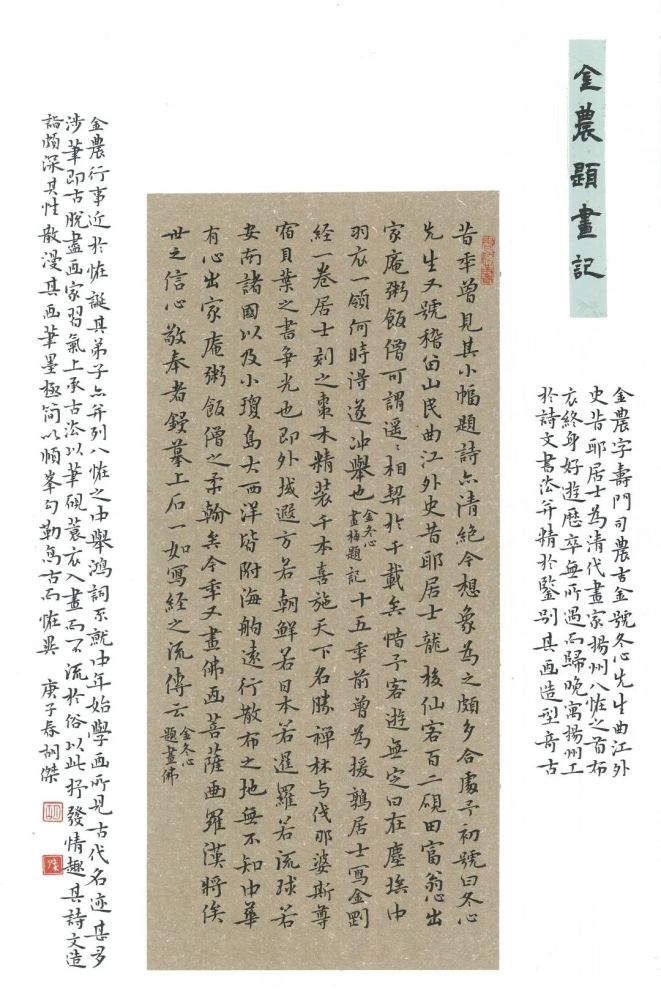 金農題畫記
金農字壽門司農吉金號冬心先生曲江外
史昔耶居士為清代畫家揚州八怪之首布
衣終身好遊歷卒無所遇而歸晚寓揚州工
於詩文書法并精於鑒别其画造型奇古
昔年曾見其小幅題詩亦清絕今想象為之頗多合處予初號曰冬心
先生又號稽留山民曲江外史昔耶居士龍梭仙客百二硯田富翁心出
家庵粥飯僧可謂遥遥相契於千載矣惜予客遊無定日在塵埃中
羽衣一領何時得遂冲舉也金冬心畫梅題記十五年前曾為援鶉居士寫金剛
経一卷居士刻之棗木精装千本喜施天下名勝禪林与伐那婆斯尊
宿貝葉之書争光也即外域遐方若朝鮮若日本若暹羅若流球若
安南諸國以及小瓊島大西洋皆附海舶遠行散布之地無不知中華
有心出家庵粥飯僧之柔翰矣今年又畫佛画菩薩画羅漢将俟
世之信心敬奉者鋟摹上石一如寫経之流傳云金冬心題畫佛
金農行事近於怪誕其弟子亦并列八怪之中舉鴻詞不就中年始學画所見古代名迹甚多
涉筆即古脱盡画家習氣上承古法以筆硯蓑衣入畫而不流於俗以此抒發情趣其詩文造
詣頗深其性散漫其画筆墨極简以順峯勾勒為古而怪異 庚子春訓傑